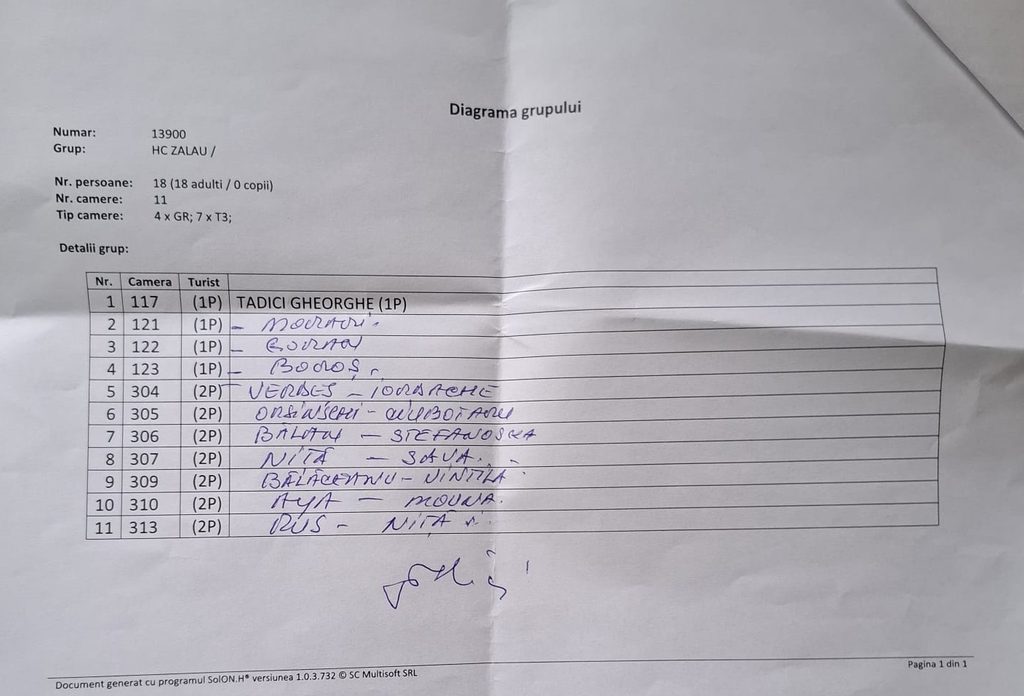 Diagrama grupului
Numar: 13900
Grup: HC ZALAU /
Nr. persoane: 18 (18 adulti / 0 copii)
Nr. camere: 11
Tip camere: 4 x GR; 7 x T3;
Detalii grup:
Nr. Camera Turist
1 117 (1P) TADICI GHEORGHE (1P)
2 121 (1P) -
3 122 (1P) -
4 123 (1P) - BOROȘ
5 304 (2P) - VERDEȘ - IORDACHE
6 305 (2P) - CIUBOTARU
7 306 (2P) BĂLAN - STEFANOSKA
8 307 (2P) NIȚĂ - SAVA.
9 309 (2P) BĂLĂCEANU - VINTILĂ
10 310 (2P) AYA - MOUNA.
11 313 (2P) RUS - NIȚĂ
Document generat cu programul SolON.H® versiunea 1.0.3.732 © SC Multisoft SRL
Pagina 1 din 1